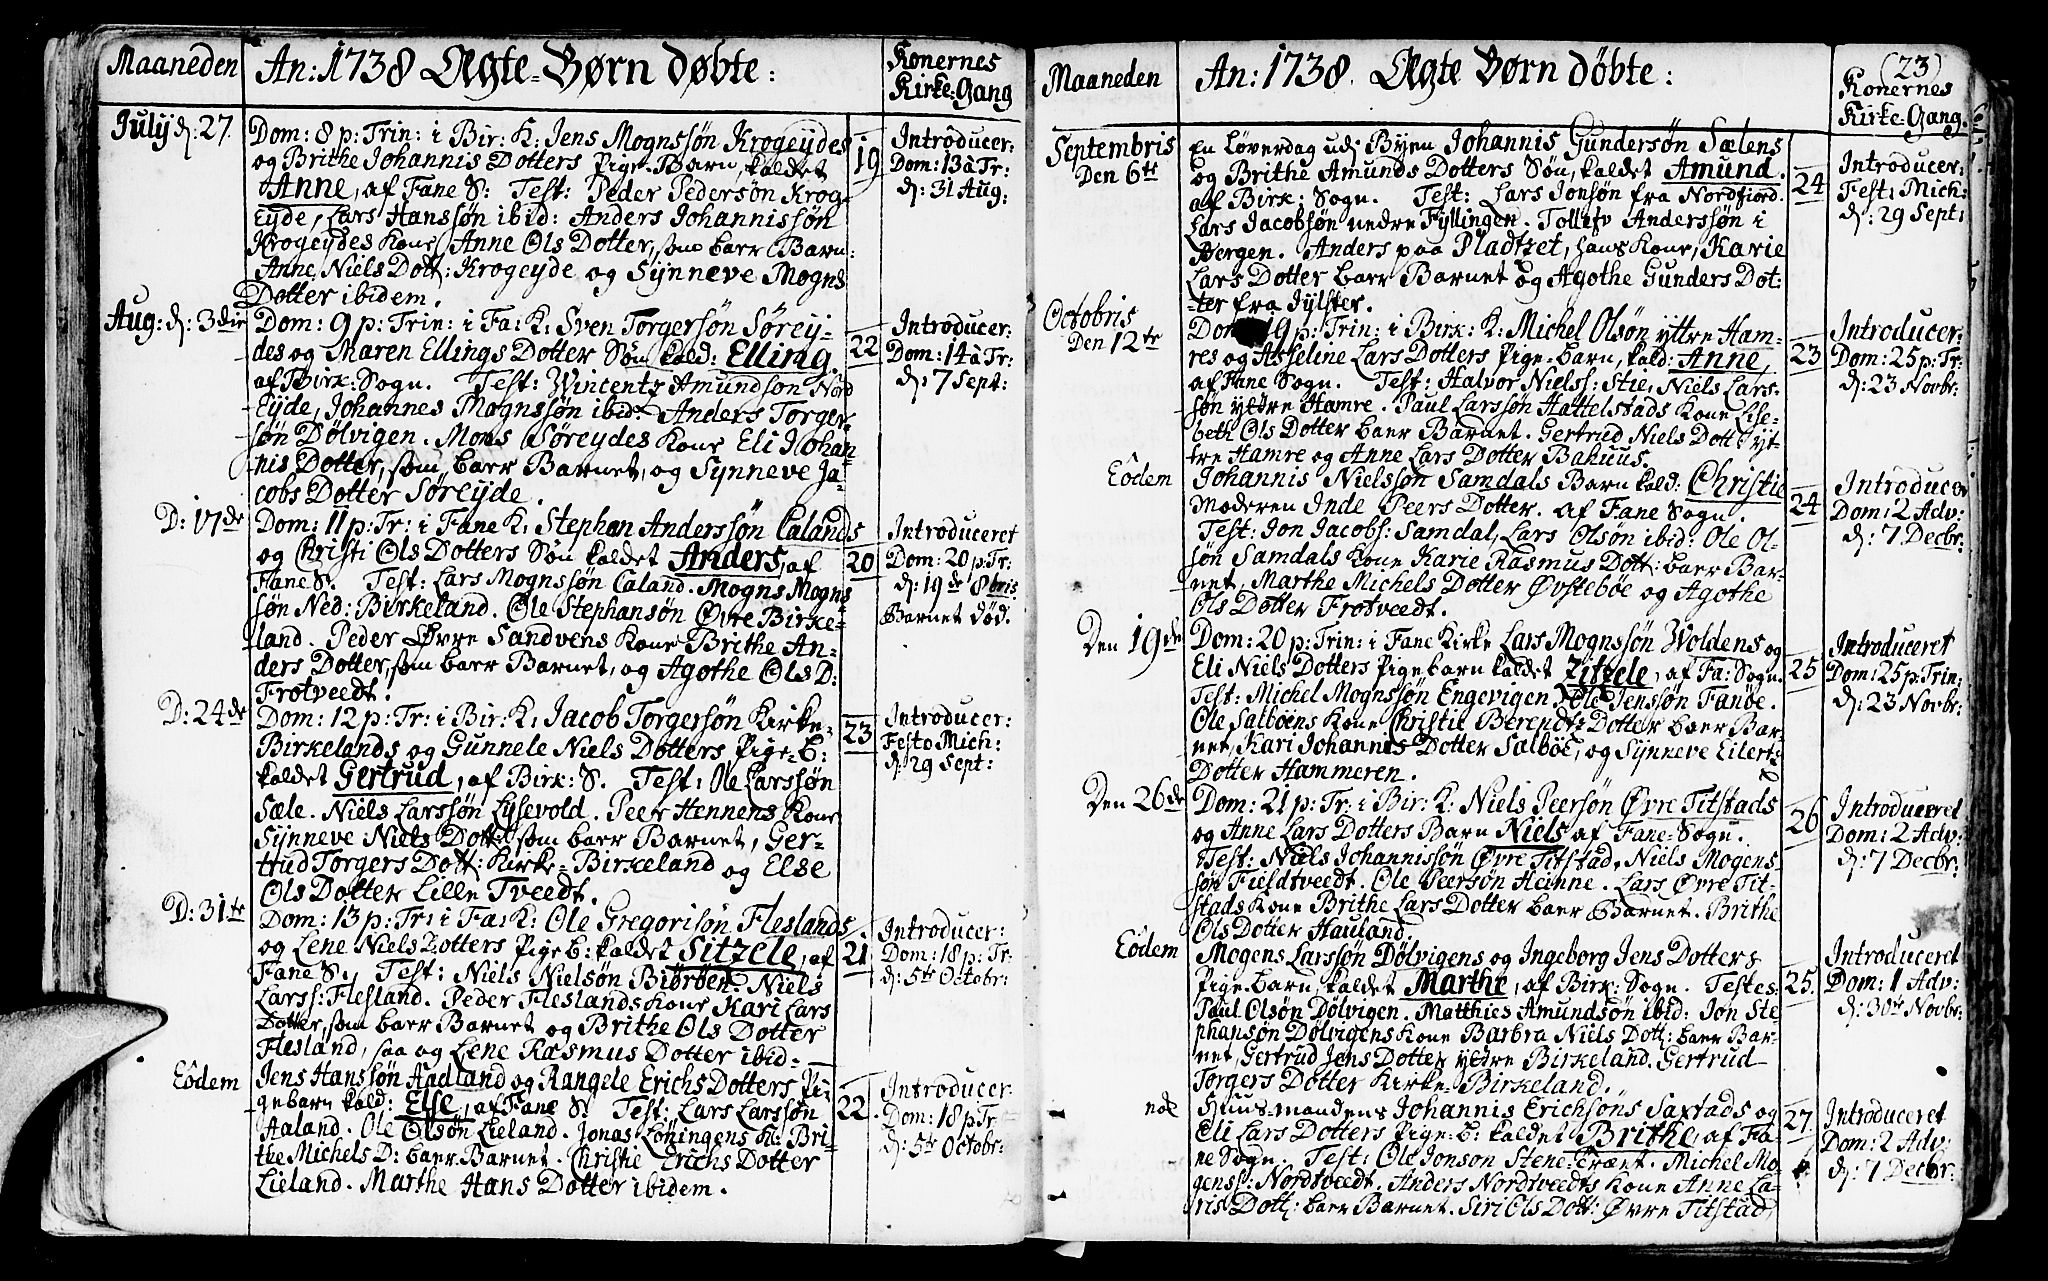 Maaneden
An: 1738 Ægte-Børn døbte:
Konernes
Kirke-Gang
July d: 27.
Dom: 8 p: Trin: i Bir: K: Jens Mognssøn Krogeydes
og Brithe Johannis Dotters Pige-Barn, kaldet
Anne, af Fane S: Test: Peder Pedersøn Krog-
Eyde, Lars Hanssøn ibid: Anders Johannissøn
Krogeydes Kone, Anne Ols Dotter, som baer Barn:
Anne Niels Dott: Krogeyde og Synneve Mogns
Dotter ibidem.
19
Introducer:
Dom: 13 à Tr:
d: 31 Aug:
Aug: d: 3die
Dom: 9 p: Trin: i Fa: K: Sven Torgersøn Sørey-
des og Maren Ellings Dotter Søn kald: Elling.
af Birk: Sogn. Test: Wincentz Amundsøn Nord
Eyde, Johannes Mognssøn ibid: Anders Torger-
søn Dølvigen. Mons Søreydes Kone Eli Johan-
nis Dotter, som baer Barnet, og Synneve Ja-
cobs Dotter Søreyde.
22
Introducer:
Dom: 14 à Tr:
d: 7 Sept:
D: 17de
Dom: 11 p: Tr: i Fane K: Stephan Anderssøn Calands
og Christi Ols Dotters Søn kaldet Anders, af
Fane S. Test: Lars Mognssøn Caland. Mogns Mogns-
søn Ned: Birkeland. Ole Stephansøn Øvre Birke-
land. Peder Øvre Sandvens Kone Brithe An-
ders Dotter, som baer Barnet, og Agothe Ols D:
Frotveedt.
20
Introduceret
Dom: 20 p: Tr:
d: 19de 8bris.
Barnet død.
D: 24de
Dom: 12 p: Tr: i Bir: K: Jacob Torgersøn Kirke-
Birkelands og Gunnele Niels Dotters Pige-B:
kaldet Gertrud, af Birk: S. Test: Ole Larssøn
Sæle. Niels Larssøn Lysevold. Peer Hennens Kone
Synneve Niels Dott: som baer Barnet, Ger-
trud Torgers Dott: Kirke-Birkeland og Else
Ols Dotter Lille Tveedt.
23
Introducer:
Festo Mich:
d: 29 Sept:
D: 31te
Dom: 13 p: Tr: i Fa: K: Ole Gregorisøn Fleslands
og Lene Niels Dotters Pige B: kaldet Sitzele, af
Fane S. Test: Niels Nielsøn Biørøen. Niels
Larss: Flesland. Peder Fleslands Kone Kari Lars
Dotter, som baer Barnet og Brithe Ols Dotter
Flesland, saa og Lene Rasmus Dotter ibid:
21
Introducer:
Dom: 18 p: Tr:
d: 5te Octobr:
Eôdem
Jens Hanssøn Aadland og Rangele Erichs Dotters Pi-
gebarn kald: Else, af Fane S. Test: Lars Larssøn
Aaland. Ole Olsøn Lieland. Jonas Løningens K: Bri-
the Michels D: baer Barnet. Christie Erichs Dotter
Lieland. Marthe Hans Dotter ibidem.
22
Introducer:
Dom: 18 p: Tr:
d: 5te Octobr:
(23)
Maaneden
An: 1738. Ægte Børn døbte:
Konernes
Kirke-Gang.
Septembris
Den 6te
En Løverdag udj Byen Johannis Gundersøn Sælens
og Brithe Amunds Dotters Søn, kaldet Amund.
af Birk: Sogn. Test: Lars Jonsøn fra Nordfiord.
Lars Jacobsøn nedre Fyllingen. Tollef Anderssøn i
Bergen. Anders paa Pladtzet, hans Kone, Karie
Lars Dotter baer Barnet og Agothe Gunders Dot:
-ter fra Jylster.
24
Introducer:
Fest: Mich:
d: 29 Sept:
Octobris
Den 12te
Dom 19 p: Trin: i Birk: K: Michel Olsøn yttre Ham-
res og Asseline Lars Dotters Pige-barn, kald: Anne,
af Fane Sogn. Test: Halvor Nielss: Stie, Niels Lars-
søn ytdre Hamre. Paul Larssøn Hattelstads Kone Else-
beth Ols Dotter baer Barnet. Gertrud Niels Dott yt-
tre Hamre og Anne Lars Dotter Bakuus.
23
Introducer:
Dom: 25 p: Tr:
d: 23 Novbr:
Eôdem
Johannis Nielssøn Samdals Barn kald: Christie
Moderen Inde Peers Dotter. af Fane Sogn.
Test: Jon Jacobs: Samdal, Lars Olsøn ibid: Ole Ol-
søn Samdals Kone Karie Rasmus Dott: baer Bar-
net, Marthe Michels Dotter Øvstebøe og Agothe
Ols Dotter Frotveedt.
24
Introducer
Dom: 2 Adv:
d: 7 Decbr:
Den 19de
Dom: 20 p: Trin: i Fane Kirke Lars Mognssøn Woldens og
Eli Niels Dotters Pigebarn kaldet Zitzele, af Fa: Sogn.
Test: Michel Mognssøn Engevigen. Ole Jenssøn Fanøe.
Ole Salbøens Kone Christie Berendtz Dotter baer Bar-
net, Kari Johannis Dotter Salbøe, og Synneve Eilerts
Dotter Hammeren.
25
Introduceret
Dom: 25 p: Trin:
d: 23 Novbr:
Den 26de
Dom: 21 p: Tr: i Bir: K: Niels Peersøn Øvre Titstads
og Anne Lars Dotters Barn Niels af Fane-Sogn.
Test: Niels Johannissøn Øvre Titstad. Niels Mogens-
søn Fieldtveedt. Ole Peersøn Heinne. Lars Øvre Tit-
stads Kone Brithe Lars Dotter baer Barnet. Brithe
Ols Dotter Hauland.
26
Introduceret
Dom: 2 Adv:
d: 7 Decbr:
Eôdem
Mogens Larssøn Dølvigens og Ingeborg Jens Dotters
Pige-Barn, kaldet Marthe, af Birk: Sogn. Testes:
Paul Olsøn Dølvigen. Matthies Amundsøn ibid: Jon Ste-
phansøn Dølvigens Kone Barbra Niels Dott: baer Bar-
net, Gertrud Jens Dotter ytdre Birkeland. Gertrud
Torgers Dotter Kirke-Birkeland.
25
Introduceret
Dom: 1 Adv:
d: 30te Novbr:
noc
Huus-mandens Johannis Erichsøns Saxtads og
Eli Lars Dotters Pige-B: kaldet Brithe, af Fa-
ne Sogn. Test: Ole Jonson Stene-Træet. Michel Mo-
genss: Nordtveedt. Anders Nordtveedts Kone Anne La-
ris Dott: baer Barnet. Siri Ols Dott: Øvre Titstad,
27
Introduceret
Dom: 2 Adv:
d: 7 Decbr: